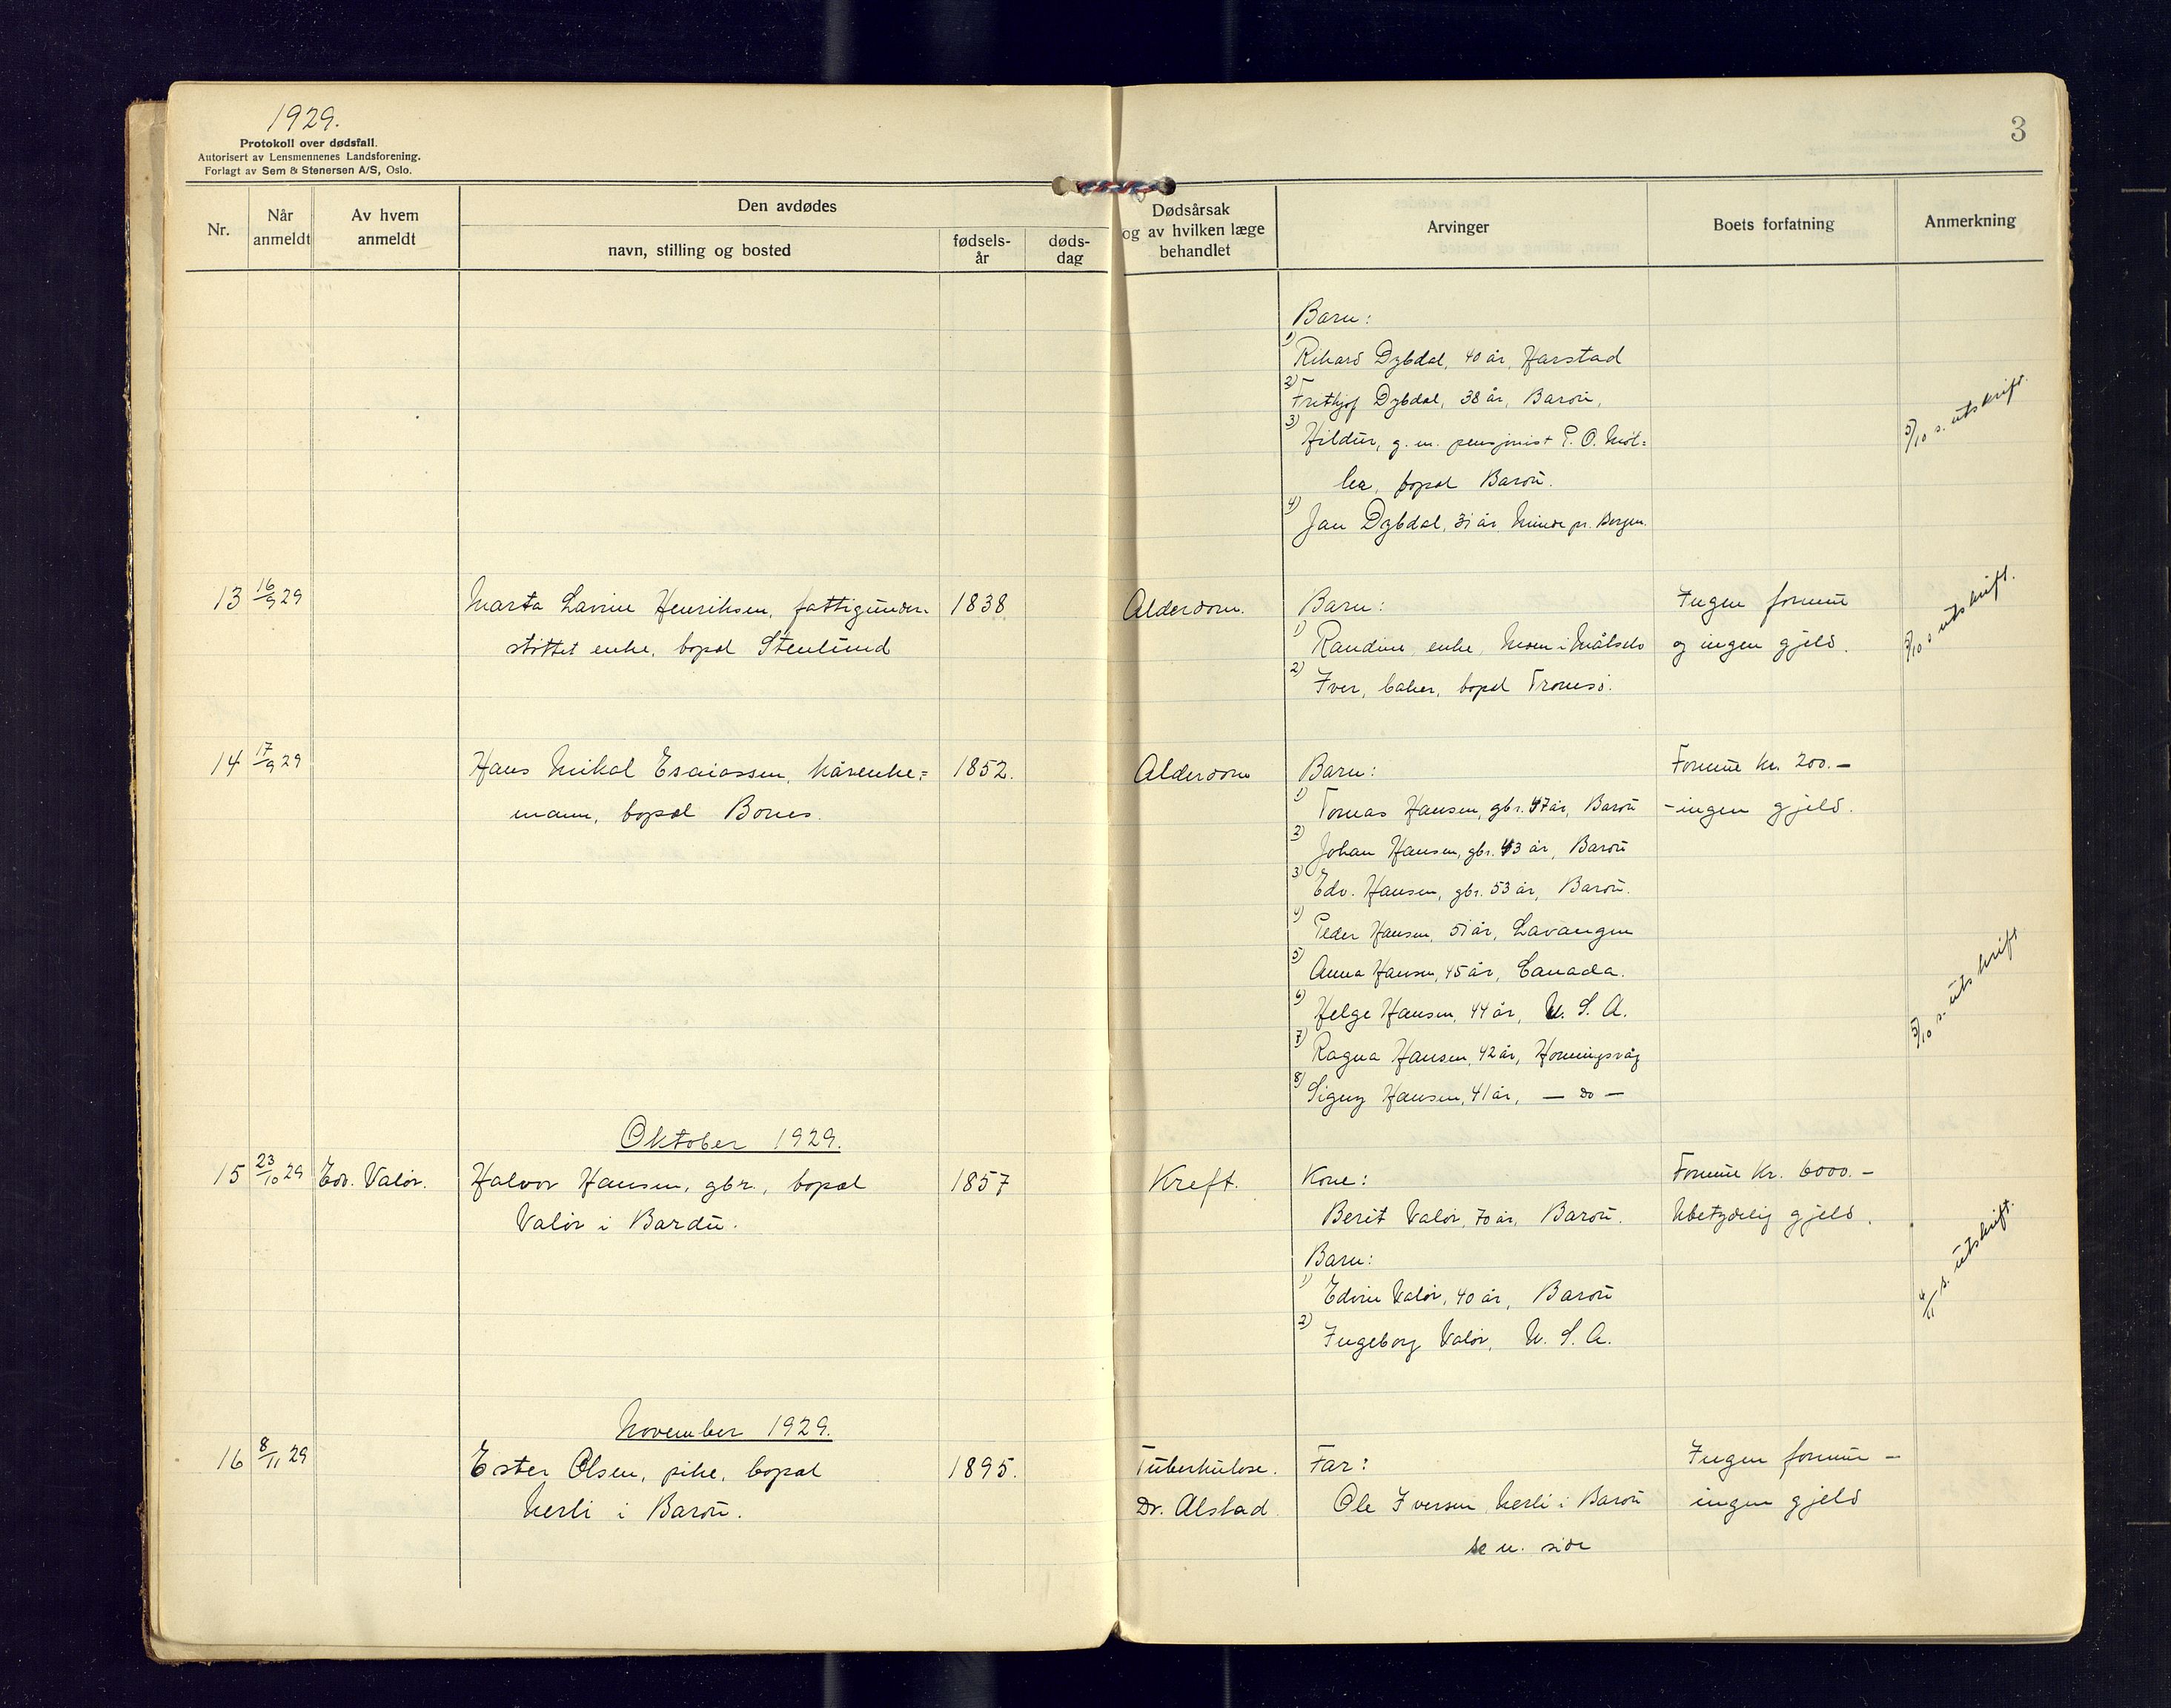 1929.
Protokoll over dødsfall.
Autorisert av Lensmennenes Landsforening.
Forlagt av Sem & Stenersen A/S, Oslo.
3
Nr.
Når anmeldt
Av hvem anmeldt
Den avdødes
navn, stilling og bosted
fødsels-år
døds-dag
Dødsårsak
og av hvilken læge
behandlet
Arvinger
Boets forfatning
Anmerkning
Barn:
1) Rikard Dybdal, 40 år, Harstad
2) Frithjof Dybdal, 38 år, Bardu,
3) Hildur, g. m. pensjonist P. O. Mol=
lea, bopel Bardu.
4) Jan Dybdal, 31 år, Minde pr. Bergen.
5/10 s. utskrift.
13 16/9 29 Marta Lavine Henriksen, fattigunder- 1838 Alderdom. Barn: Ingen formue
støttet enke, bopel Stenlund 1) Randine, enke, Moen i Målselv og ingen gjeld.
2) Iver, baker, bopel Tromsø.
5/10 s. utskrift.
14 17/9 29 Hans Mikal Esaiassen, kårenke= 1852. Alderdom Barn: Formue kr. 200.-
mann, bopel Bones. 1) Tomas Hansen, gbr. 47 år, Bardu - ingen gjeld.
2) Johan Hansen, gbr. 43 år, Bardu
3) Edv. Hansen, gbr. 53 år, Bardu.
4) Peder Hansen, 51 år, Lavangen
5) Anna Hansen, 45 år, Canada.
6) Helge Hansen, 44 år, U. S. A.
7) Ragna Hansen, 42 år, Honningsvåg
8) Signy Hansen, 41 år, - do -
5/10 s. utskrift
Oktober 1929.
15 23/10 29 Edv. Valør. Halvor Hansen, gbr., bopel 1857 Kreft. Kone: Formue kr. 6000.-
Valør i Bardu. Berit Valør, 70 år, Bardu. Ubetydelig gjeld.
Barn:
1) Edvin Valør, 40 år, Bardu
2) Ingeborg Valør, U. S. A.
4/11 s. utskrift.
November 1929.
16 8/11 29 Ester Olsen, pike, bopel 1895. Tuberkulose. Far: Ingen formue -
Nerli i Bardu. Dr. Alstad. Ole Iversen, Nerli i Bardu ingen gjeld
se n. side